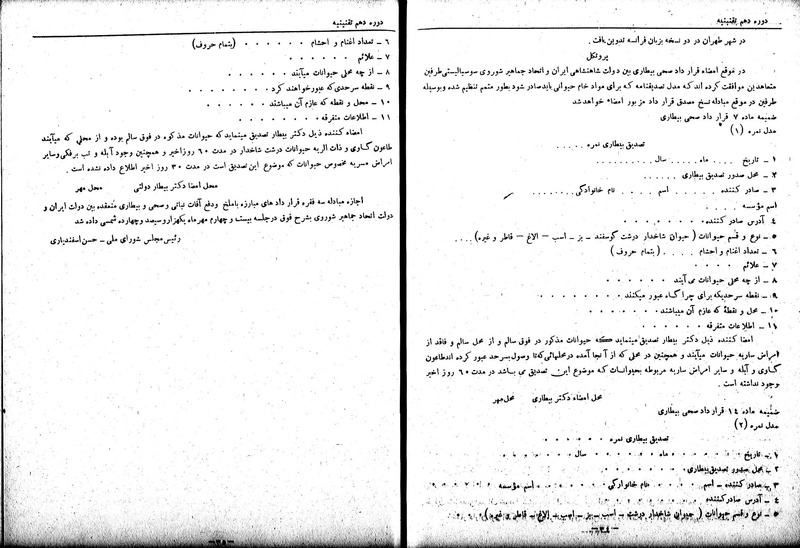 دوره دهم تقنینیه
در شهر طهران در دو نسخه بزبان فرانسه تدوین یافت.
پروتکل
در موقع امضاء قرار داد صحی بیطاری بین دولت شاهنشاهی ایران و اتحاد جماهیر شوروی سوسیالیستی طرفین
متعاهدین موافقت کرده اند که مدل تصدیقنامه که برای مواد خام حیوانی باید صادر شود بطور متمم تنظیم شده و بوسیله
طرفین در موقع مبادله نسخ مصدق قرار داد مزبور امضاء خواهد شد
ضمیمه ماده ۷ قرار داد صحی بیطاری
مدل نمره (۱)
تصدیق بیطاری نمره . . . . .
۱ - تاریخ . . . . ماه . . . . . سال . . . . . . . . .
۲ - محل صدور تصدیق بیطاری . . . . . .
۳ - صادر کننده . . . . . . اسم . . . . نام خانوادگی . . . . . . . .
اسم مؤسسه . . . .
۴ - آدرس صادر کننده . . . . . . . .
۵ - نوع و قسم حیوانات ( حیوان شاخدار درشت گوسفند - بز - اسب - الاغ - قاطر و غیره) . . .
۶ - تعداد اغنام و احشام . . . . ( بتمام حروف )
۷ - علائم . . . .
۸ - از چه محلی حیوانات می آیند . . . . . . .
۹ - نقطه سرحدیکه برای چرا گاه عبور میکنند . . . . . . . .
۱۰ - محل و نقطۀ که عازم آن میباشند . . . . . . .
۱۱ - اطلاعات متفرقه . . . . . .
امضا کننده ذیل دکتر بیطار تصدیق مینماید که حیوانات مذکور در فوق سالم و از محل سالم و فاقد از
امراض ساریه حیوانات میآیند و همچنین در محلی که از آنجا آمده در محلهائی که تا وصول بسرحد عبور کرده اند طاعون
گاوی و آبله و سایر امراض ساریه مربوطه بحیوانات که موضوع این تصدیق می باشد در مدت ۶۰ روز اخیر
وجود نداشته است .
محل امضاء دکتر بیطاری محل مهر
ضمیمه ماده ۱۴ قرار داد صحی بیطاری
مدل نمره (۲)
تصدیق بیطاری نمره . . . . . .
۱ - تاریخ . . . . . . . ماه . . . . . . سال . . . . . . .
۲ - محل صدور تصدیق بیطاری . . . . . . . .
۳ - صادر کننده - اسم . . . . نام خانوادگی . . . . . . . اسم مؤسسه . . . . . .
۴ - آدرس صادر کننده . . . . . .
۵ - نوع و قسم حیوانات ( حیوان شاخدار درشت - اسب - بز - اسب - الاغ - قاطر و غیره)
-۳۴-
دوره دهم تقنینیه
۶ - تعداد اغنام و احشام . . . . . . (بتمام حروف)
۷ - علائم . . . . . .
۸ - از چه محلی حیوانات میآیند . . . . . . . .
۹ - نقطه سرحدی که عبور خواهند کرد . . . . . . . .
۱۰ - محل و نقطه که عازم آن میباشند . . . . . . . .
۱۱ - اطلاعات متفرقه . . . . . . . .
امضاء کننده ذیل دکتر بیطار تصدیق مینماید که حیوانات مذکوره در فوق سالم بوده و از محلی که میآیند
طاعون گاوی و ذات الریه حیوانات درشت شاخدار در مدت ۶۰ روز اخیر و همچنین وجود آبله و تب برفکی و سایر
امراض مسریه مخصوص حیوانات که موضوع این تصدیق است در مدت ۳۰ روز اخیر اطلاع داده نشده است .
محل امضاء دکتر بیطار دولتی محل مهر
اجازه مبادله سه فقره قرار داد های مبارزه با ملخ و دفع آفات نباتی و صحی و بیطاری منعقده بین دولت ایران و
دولت اتحاد جماهیر شوروی بشرح فوق در جلسه بیست و چهارم مهر ماه یکهزار و سیصد و چهارده شمسی داده شد
رئیس مجلس شورای ملی - حسن اسفندیاری
-۳۵-